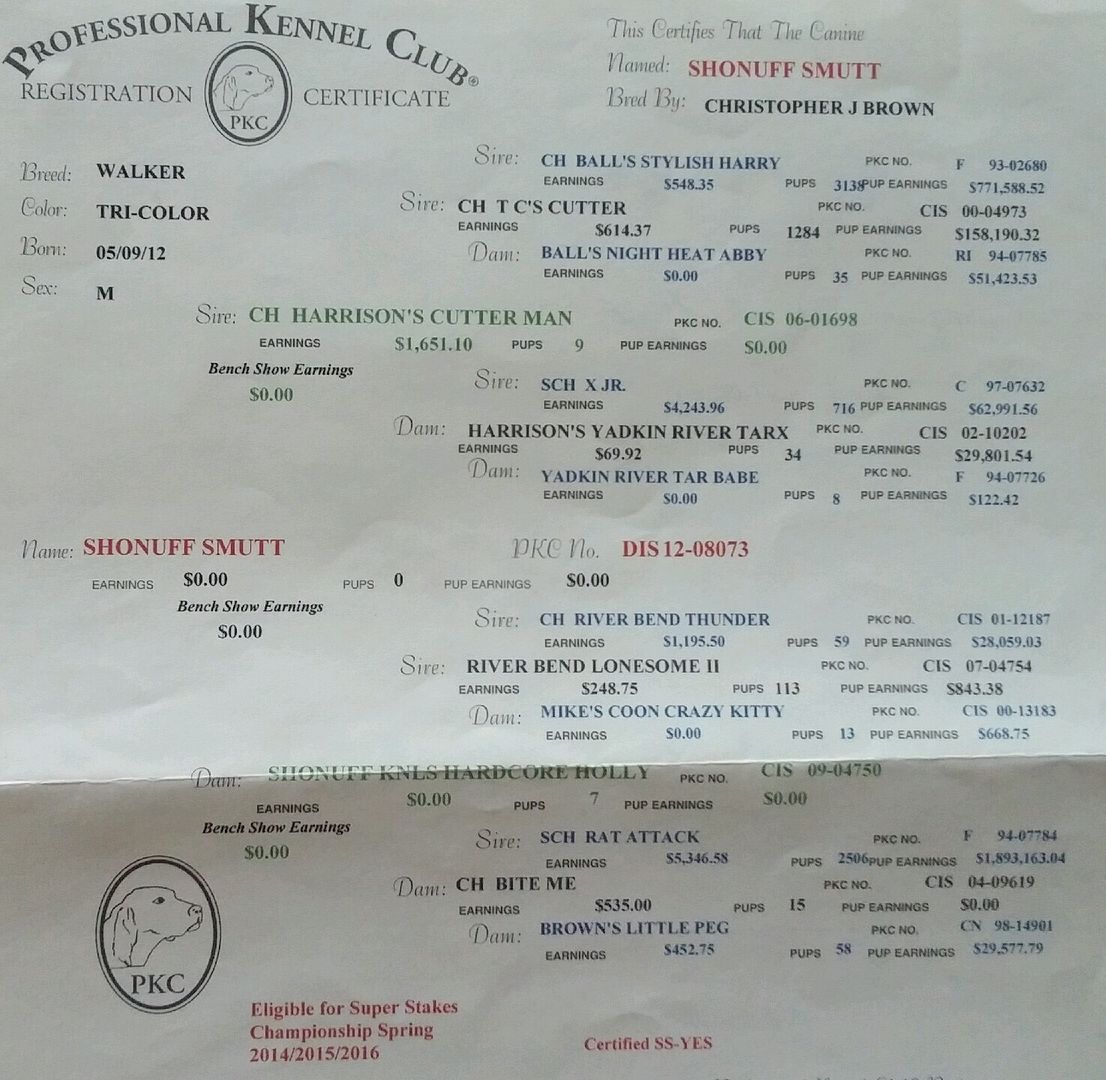 PROFESSIONAL KENNEL CLUB®
REGISTRATION CERTIFICATE
PKC
This Certifies That The Canine
Named: SHONUFF SMUTT
Bred By: CHRISTOPHER J BROWN
Breed: WALKER
Color: TRI-COLOR
Born: 05/09/12
Sex: M
Sire: CH BALL'S STYLISH HARRY PKC NO. F 93-02680
EARNINGS $548.35 PUPS 3138 PUP EARNINGS $771,588.52
Sire: CH T C'S CUTTER PKC NO. CIS 00-04973
EARNINGS $614.37 PUPS 1284 PUP EARNINGS $158,190.32
Dam: BALL'S NIGHT HEAT ABBY PKC NO. RI 94-07785
EARNINGS $0.00 PUPS 35 PUP EARNINGS $51,423.53
Sire: CH HARRISON'S CUTTER MAN PKC NO. CIS 06-01698
EARNINGS $1,651.10 PUPS 9 PUP EARNINGS $0.00
Bench Show Earnings
$0.00
Sire: SCH X JR. PKC NO. C 97-07632
EARNINGS $4,243.96 PUPS 716 PUP EARNINGS $62,991.56
Dam: HARRISON'S YADKIN RIVER TARX PKC NO. CIS 02-10202
EARNINGS $69.92 PUPS 34 PUP EARNINGS $29,801.54
Dam: YADKIN RIVER TAR BABE PKC NO. F 94-07726
EARNINGS $0.00 PUPS 8 PUP EARNINGS $122.42
Name: SHONUFF SMUTT PKC No. DIS 12-08073
EARNINGS $0.00 PUPS 0 PUP EARNINGS $0.00
Bench Show Earnings
$0.00
Sire: CH RIVER BEND THUNDER PKC NO. CIS 01-12187
EARNINGS $1,195.50 PUPS 59 PUP EARNINGS $28,059.03
Sire: RIVER BEND LONESOME II PKC NO. CIS 07-04754
EARNINGS $248.75 PUPS 113 PUP EARNINGS $843.38
Dam: MIKE'S COON CRAZY KITTY PKC NO. CIS 00-13183
EARNINGS $0.00 PUPS 13 PUP EARNINGS $668.75
Dam: SHONUFF KNLS HARDCORE HOLLY PKC NO. CIS 09-04750
EARNINGS $0.00 PUPS 7 PUP EARNINGS $0.00
Bench Show Earnings
$0.00
Sire: SCH RAT ATTACK PKC NO. F 94-07784
EARNINGS $5,346.58 PUPS 2506 PUP EARNINGS $1,893,163.04
Dam: CH BITE ME PKC NO. CIS 04-09619
EARNINGS $535.00 PUPS 15 PUP EARNINGS $0.00
Dam: BROWN'S LITTLE PEG PKC NO. CN 98-14901
EARNINGS $452.75 PUPS 58 PUP EARNINGS $29,577.79
PKC
Eligible for Super Stakes
Championship Spring
2014/2015/2016
Certified SS-YES